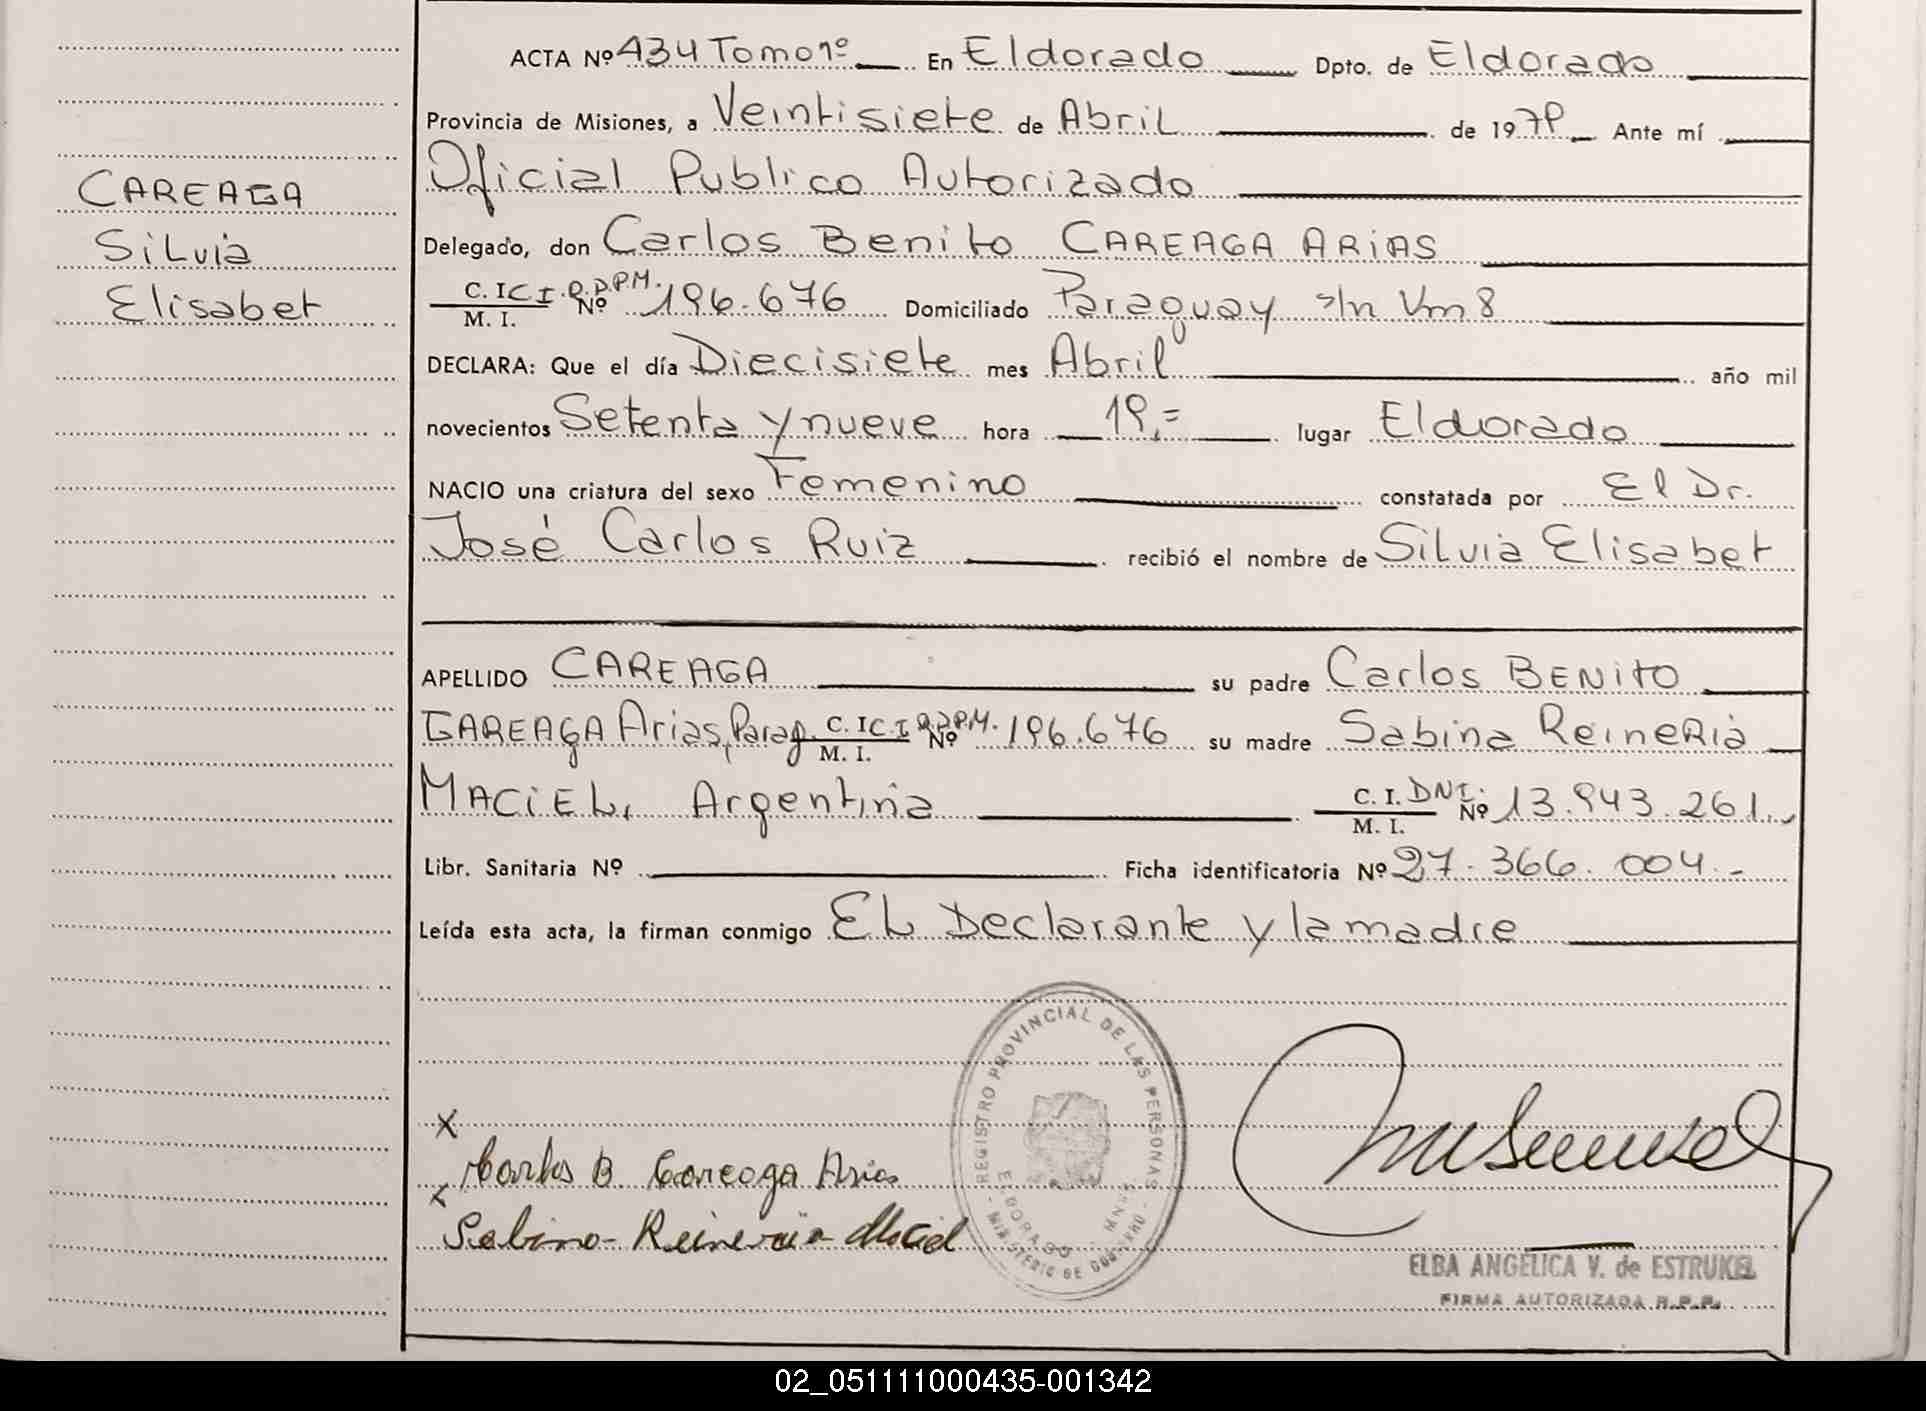 ACTA Nº 434 Tomo 1º En Eldorado Dpto. de Eldorado
Provincia de Misiones, a Veintisiete de Abril de 1979 Ante mí
Oficial Publico Autorizado
CAREAGA
Delegado, don Carlos Benito CAREAGA ARIAS
Silvia
C. I. C.I. P.D.P.M. Nº 196.676 Domiciliado Paraguay s/n Km 8
M. I.
Elisabet
DECLARA: Que el día Diecisiete mes Abril año mil
novecientos Setenta y nueve hora 19,= lugar Eldorado
NACIO una criatura del sexo Femenino constatada por El Dr.
José Carlos Ruiz recibió el nombre de Silvia Elisabet
APELLIDO CAREAGA su padre Carlos BENITO
CAREAGA Arias, Parag. C. I. C.I. P.D.P.M. Nº 196.676 su madre Sabina Reineria
M. I.
MACIEL, Argentina C. I. DNI. Nº 13.943.261.
M. I.
Libr. Sanitaria Nº Ficha identificatoria Nº 27.366.004.-
Leída esta acta, la firman conmigo EL Declarante y la madre
REGISTRO PROVINCIAL DE LAS PERSONAS
ELDORADO MNES.
MINISTERIO DE GOBIERNO
X
Carlos B. Careaga Arias
X
Sabina Reineria Maciel
ELBA ANGÉLICA V. de ESTRUKEL
FIRMA AUTORIZADA R.P.P.
02_051111000435-001342